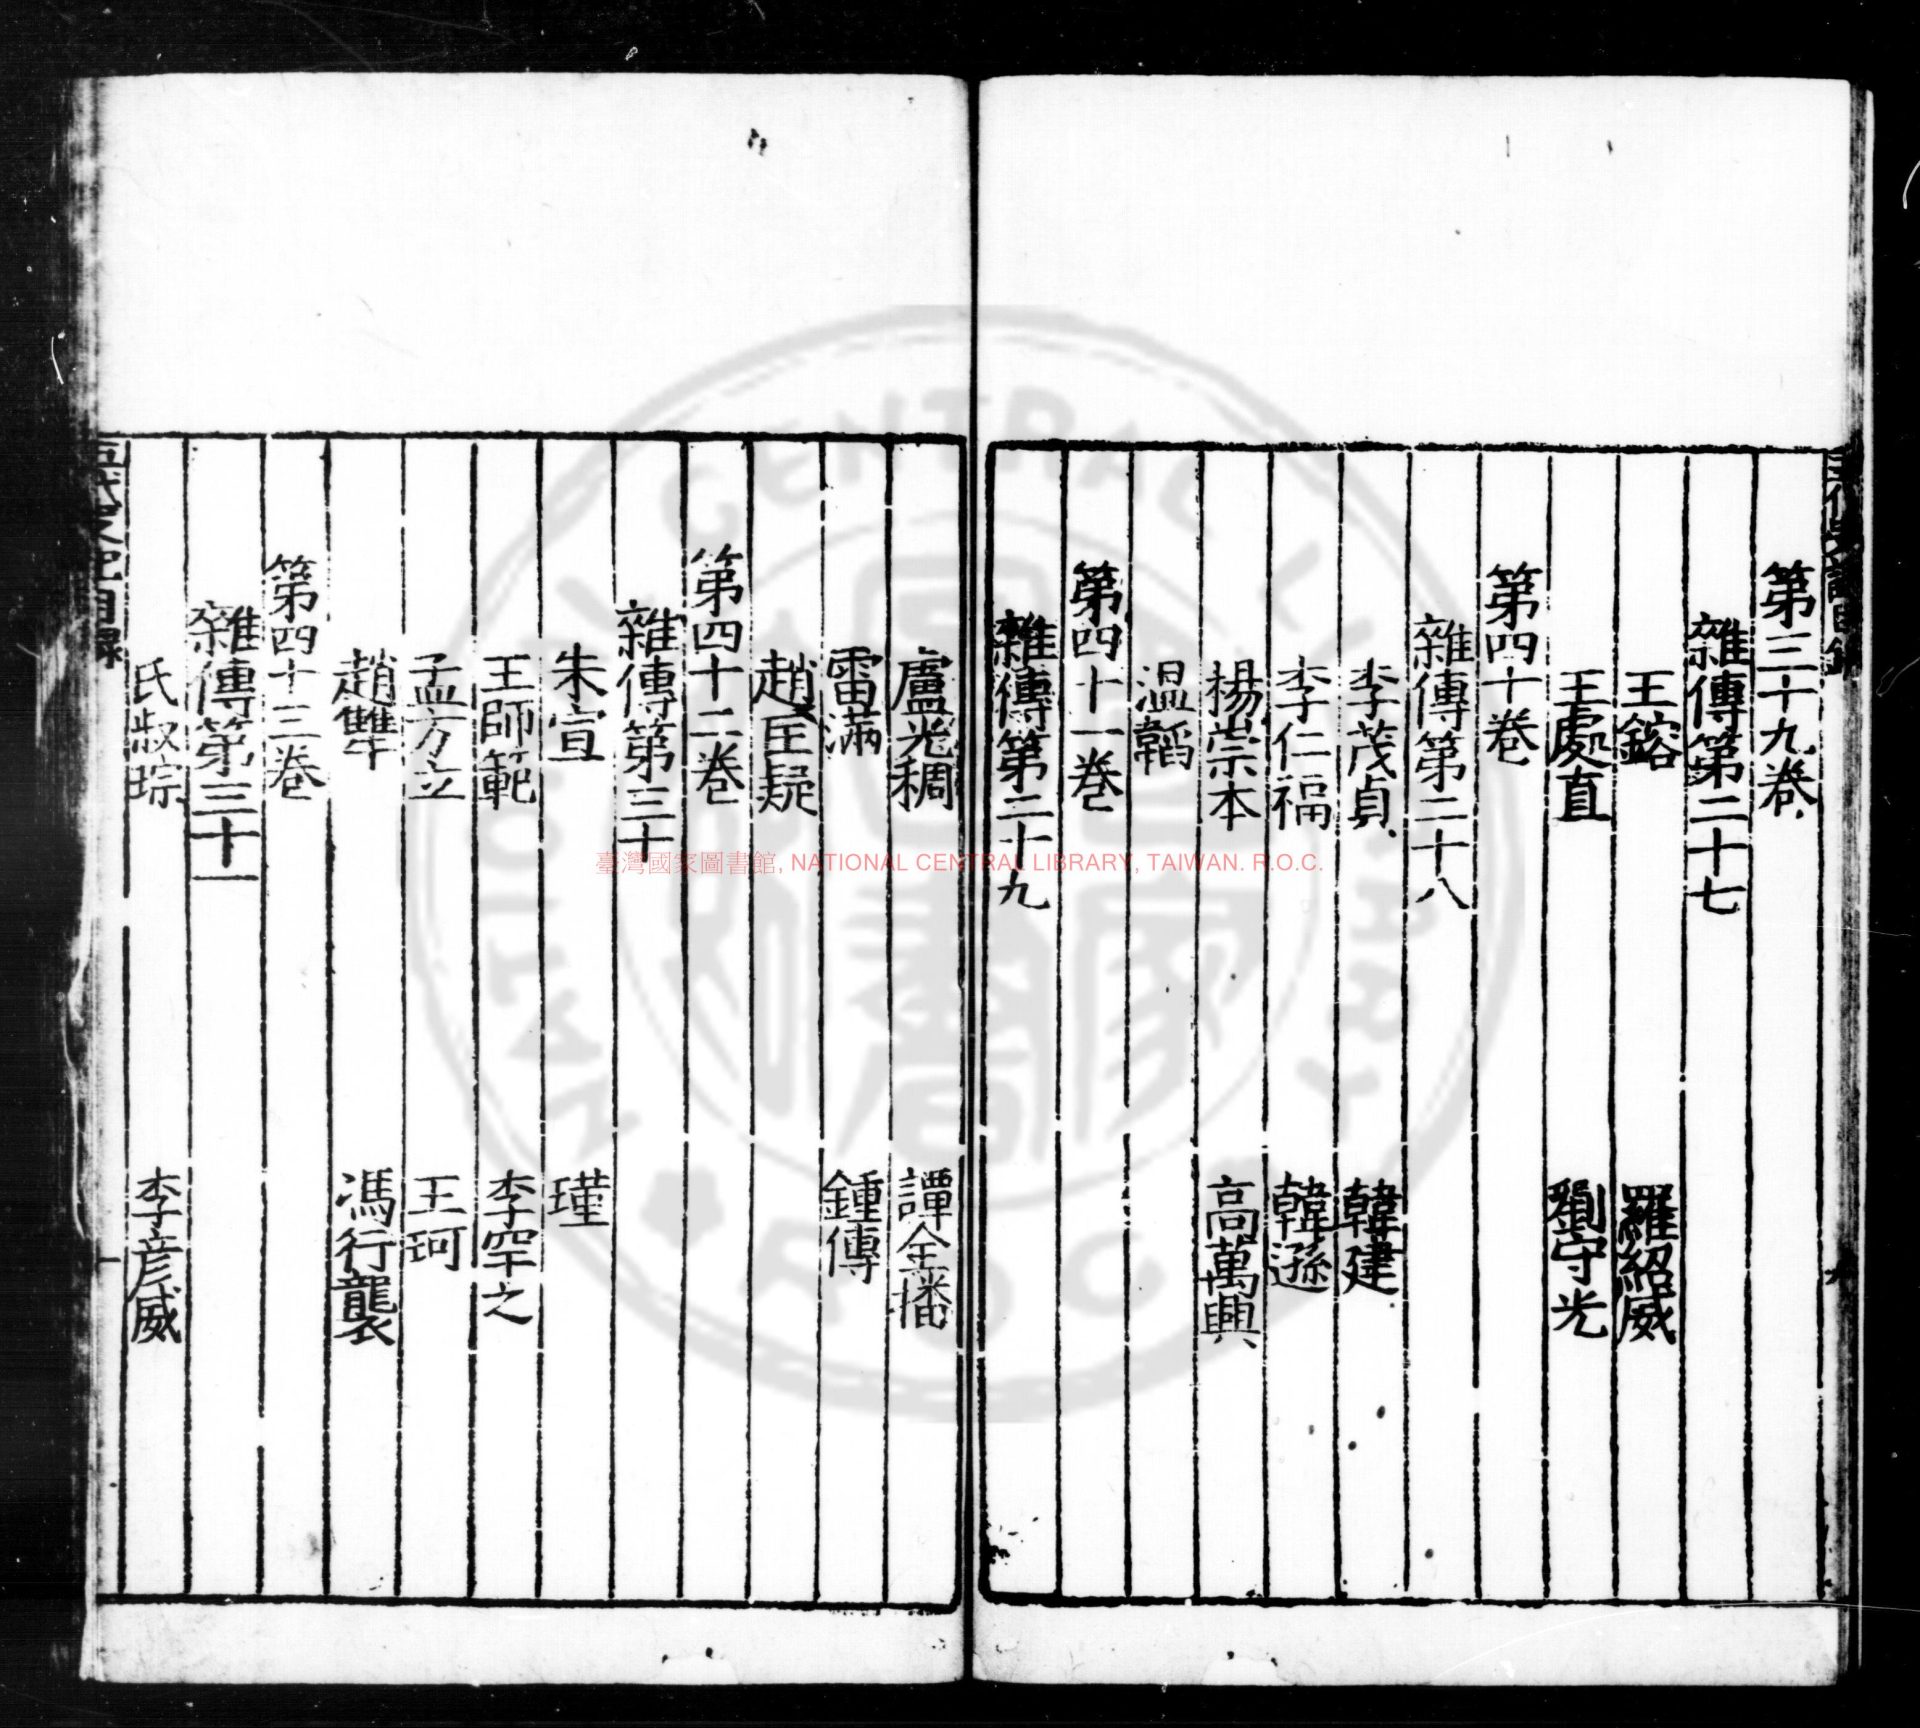 第三十九卷
雜傳第二十七
王鎔 羅紹威
王處直 劉守光
第四十卷
雜傳第二十八
李茂貞 韓建
李仁福 韓遜
楊崇本 高萬興
温韜
第四十一卷
雜傳第二十九
盧光稠 譚全播
雷滿 鍾傳
趙匡凝
第四十二卷
雜傳第三十
朱宣 瑾
王師範 李罕之
孟方立 王珂
趙犨 馮行襲
第四十三卷
雜傳第三十一
氏叔琮 李彦威
五代史記目録
臺灣國家圖書館, NATIONAL CENTRAL LIBRARY, TAIWAN. R.O.C.